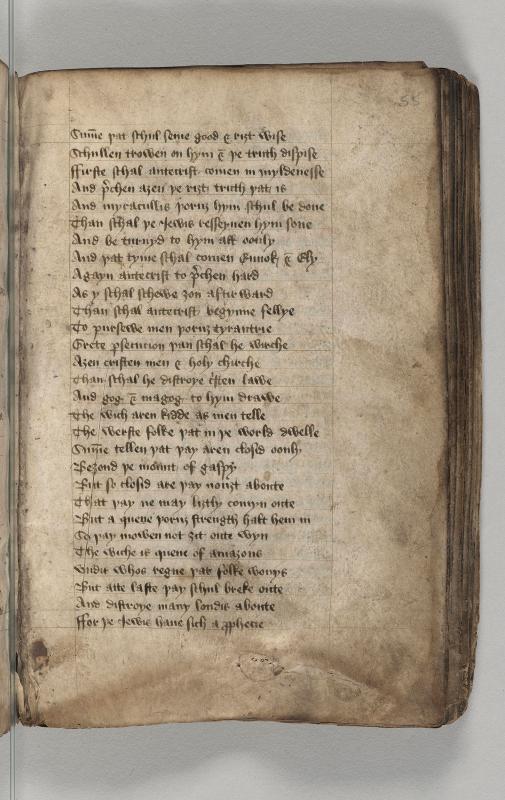 55
Sum̄e þat schul seme good & riȝt wise
Schullen trowen on hym & þe truth dispise
ffirste schal antecrist comen in myldenesse
And p̉chen aȝen þe riȝt truth þat is
And myracullis þoruȝ hym schul be done
Than schal þe Jewis resseyuen hym sone
And be turnyd to hym all oonly
And þat tyme schal comen Ennok & Ely
Agayn antecrist to p̉chen hard
As y schal schewe ȝou aftirward
Than schal antecrist begynne fellye
To pursewe men þoruȝ tyrantrie
Grete ꝑsecucion þan schal he wirche
Aȝen cristen men & holy chirche
Than schal he distroye c̉sten lawe
And gog & magog to hym drawe
The wich aren kidde as men telle
The werste folke þat in þe world dwelle
Sum̄e tellen þat þay aren closid oonly
Beȝond þe mount of gaspy
But so closid are þay nouȝt aboute
That þay ne may liȝtly comyn oute
But a quene þoruȝ strength halt hem in
So þay mowen not ȝit oute wyn
The wiche is quene of amazons
Vndir whos regne þat folke wonys
But atte laste þay schul breke oute
And distroye many londis aboute
ffor þe Jewis haue sich a ꝓphecie